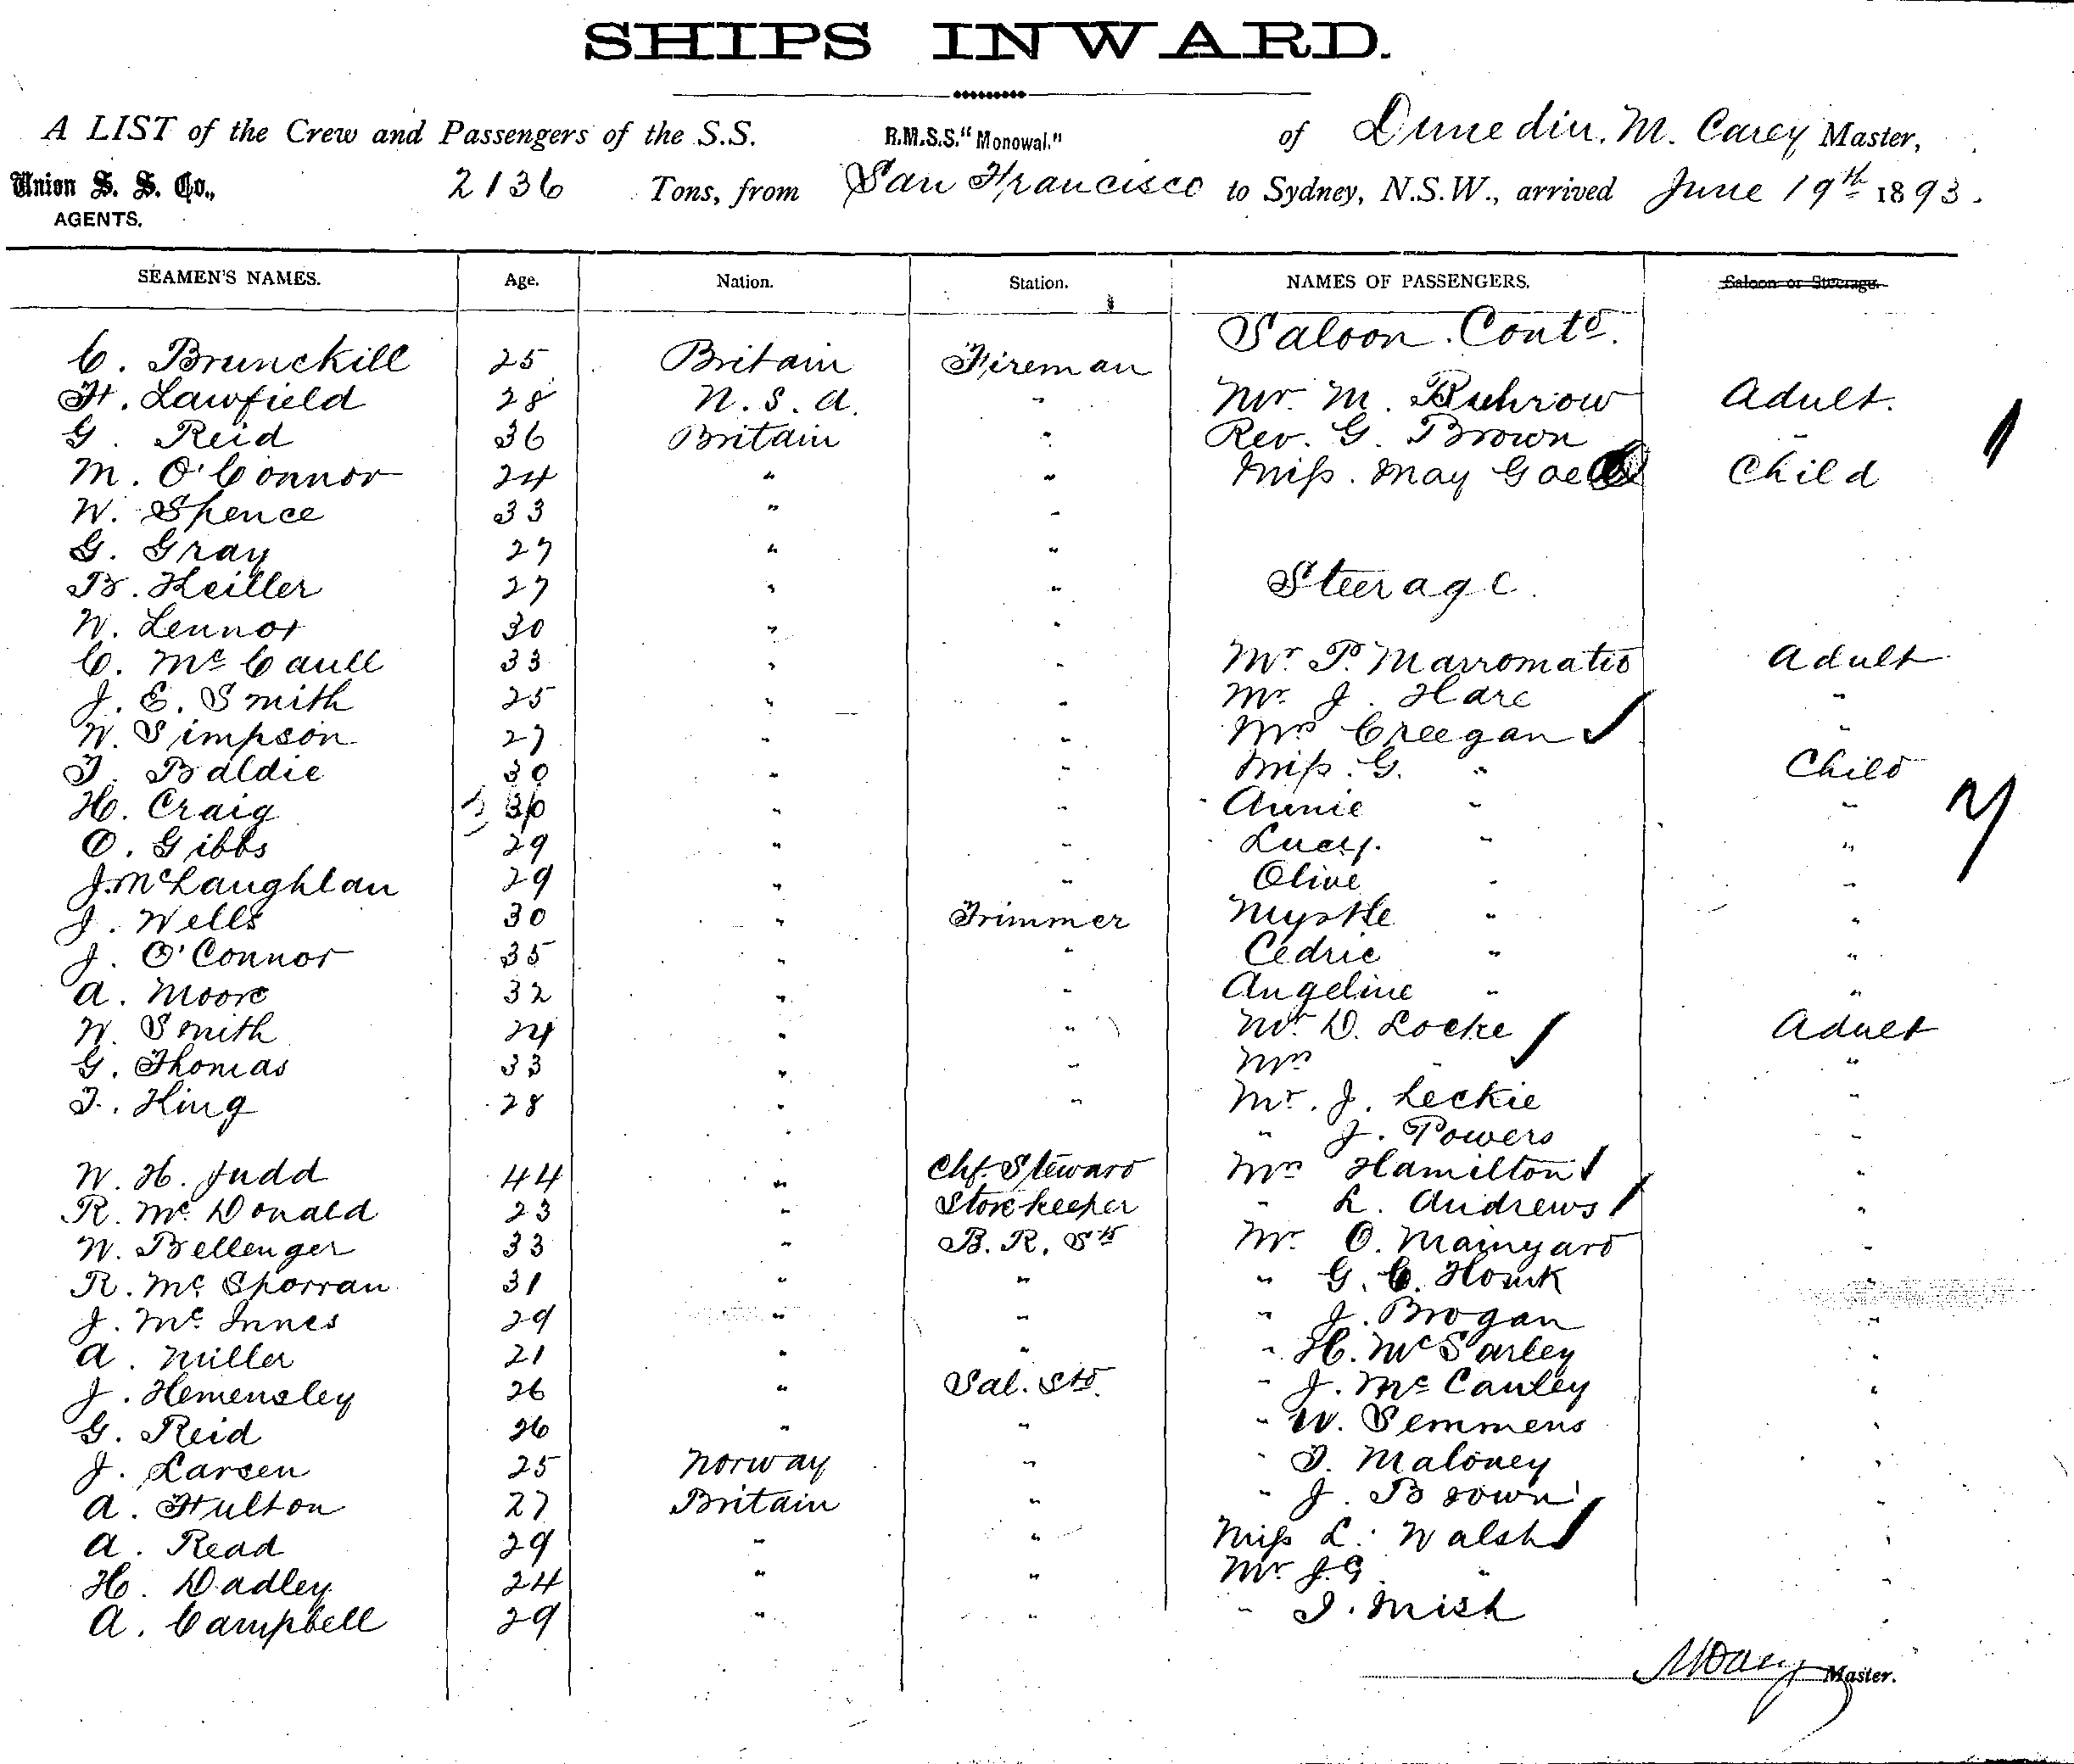 SHIPS INWARD.
A LIST of the Crew and Passengers of the S.S. R.M.S.S. "Monowai." of Dunedin, M. Carey Master,
Union S. S. Co., 2136 Tons, from San Francisco to Sydney, N.S.W., arrived June 19th 1893.
AGENTS.
SEAMEN'S NAMES. Age. Nation. Station. NAMES OF PASSENGERS. Saloon or Steerage.
Saloon. Contd.
C. Brunckill 25 Britain Fireman
H. Lawfield 28 N.S.A. " Mr. M. Buhrow Adult.
G. Reid 36 Britain " Rev. G. Brown "
M. O'Connor 24 " " Miss. May Child
W. Spence 33 " "
G. Gray 27 " "
B. Keiller 27 " " Steerage.
W. Lennox 30 " "
C. McCaull 33 " " Mr. P. Marromatis Adult
J. E. Smith 25 " " Mr. J. Hare "
W. Simpson 27 " " Mrs Creegan "
T. Baldie 30 " " Miss. G. " Child
H. Craig 30 " " Annie " "
O. Gibbs 29 " " Lucy. " "
J. McLaughlan 29 " " Olive " "
J. Wells 30 " Trimmer Myrtle " "
J. O'Connor 35 " " Cedric " "
A. Moore 32 " " Angeline " "
W. Smith 24 " " Mr. D. Locke Adult
G. Thomas 33 " " Mrs " "
T. King 28 " " Mr. J. Leckie "
" J. Powers "
W. H. Judd 44 " Chf. Steward Mrs Hamilton "
R. McDonald 23 " Storekeeper " L. Andrews "
W. Bellenger 33 " B. R. Std Mr. O. Mainyard "
R. McSporran 31 " " " G. C. Houk "
J. McInnes 29 " " " J. Brogan "
A. Miller 21 " " " H. McSarley "
J. Hemensley 26 " Sal. Std. " J. McCauley "
G. Reid 26 " " " W. Semmens "
J. Larsen 25 Norway " " T. Maloney "
A. Fulton 27 Britain " " J. Brown "
A. Read 29 " " Miss L. Walsh "
H. Dadley 24 " " Mr J.G. " "
A. Campbell 29 " " " I. Mish "
M Carey Master.